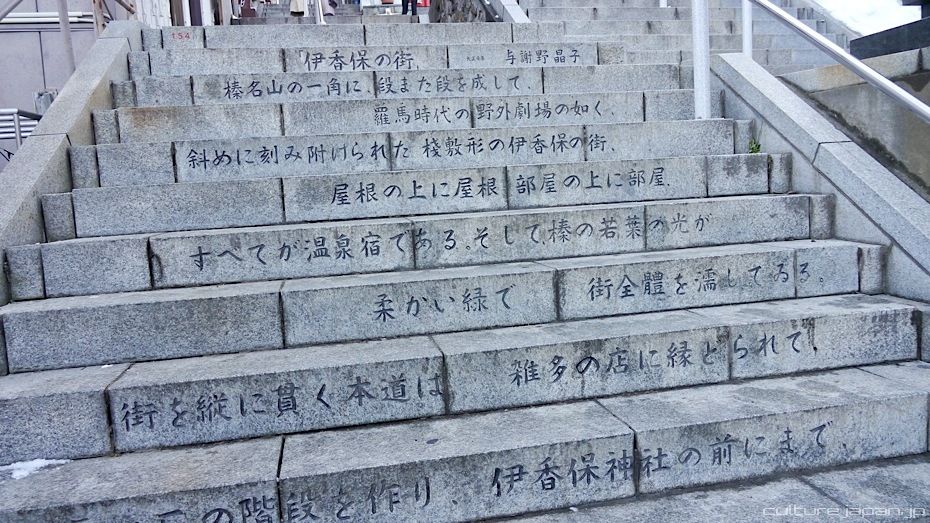 154
「伊香保の街」 与謝野晶子
榛名山の一角に、段また段を成して、
羅馬時代の野外劇場の如く、
斜めに刻み附けられた 棧敷形の伊香保の街、
屋根の上に屋根、部屋の上に部屋、
すべてが温泉宿である。そして、榛の若葉の光が
柔かい緑で 街全體を濡してゐる。
街を縦に貫く本道は 雑多の店に縁どられて、
の階段を作り、伊香保神社の前にまで、
culture.japan.jp